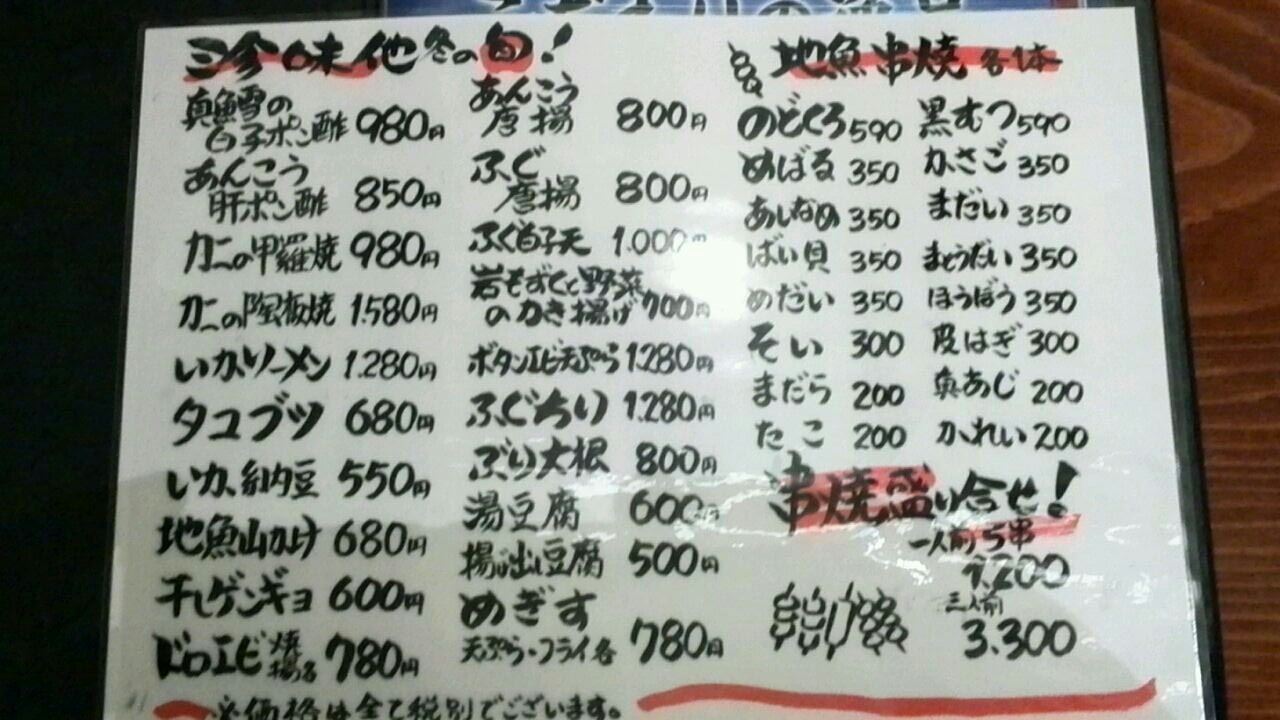 珍味他 冬の旬!
真鱈の
白子ポン酢 980円
あんこう
肝ポン酢 850円
カニの甲羅焼 980円
カニの陶板焼 1.580円
いかソーメン 1.280円
タコブツ 680円
いか納豆 550円
地魚山かけ 680円
干しゲンギョ 600円
ドロエビ 焼
揚各 780円
あんこう
唐揚 800円
ふぐ
唐揚 800円
ふぐ白子天 1.000円
岩もずくと野菜
のかき揚げ 700円
ボタンエビ天ぷら 1.280円
ふぐちり 1.280円
ぶり大根 800円
湯豆腐 600円
揚げ出し豆腐 500円
めぎす
天ぷら・フライ各 780円
地魚串焼 各1本
のどくろ 590
めばる 350
あしなめ 350
ばい貝 350
めだい 350
そい 300
まだら 200
たこ 200
黒むつ 590
かさご 350
まだい 350
まとうだい 350
ほうぼう 350
皮はぎ 300
真あじ 200
かれい 200
串焼盛り合せ!
一人前 5串
1.200
三人前
3.300
※価格は全て税別でございます。